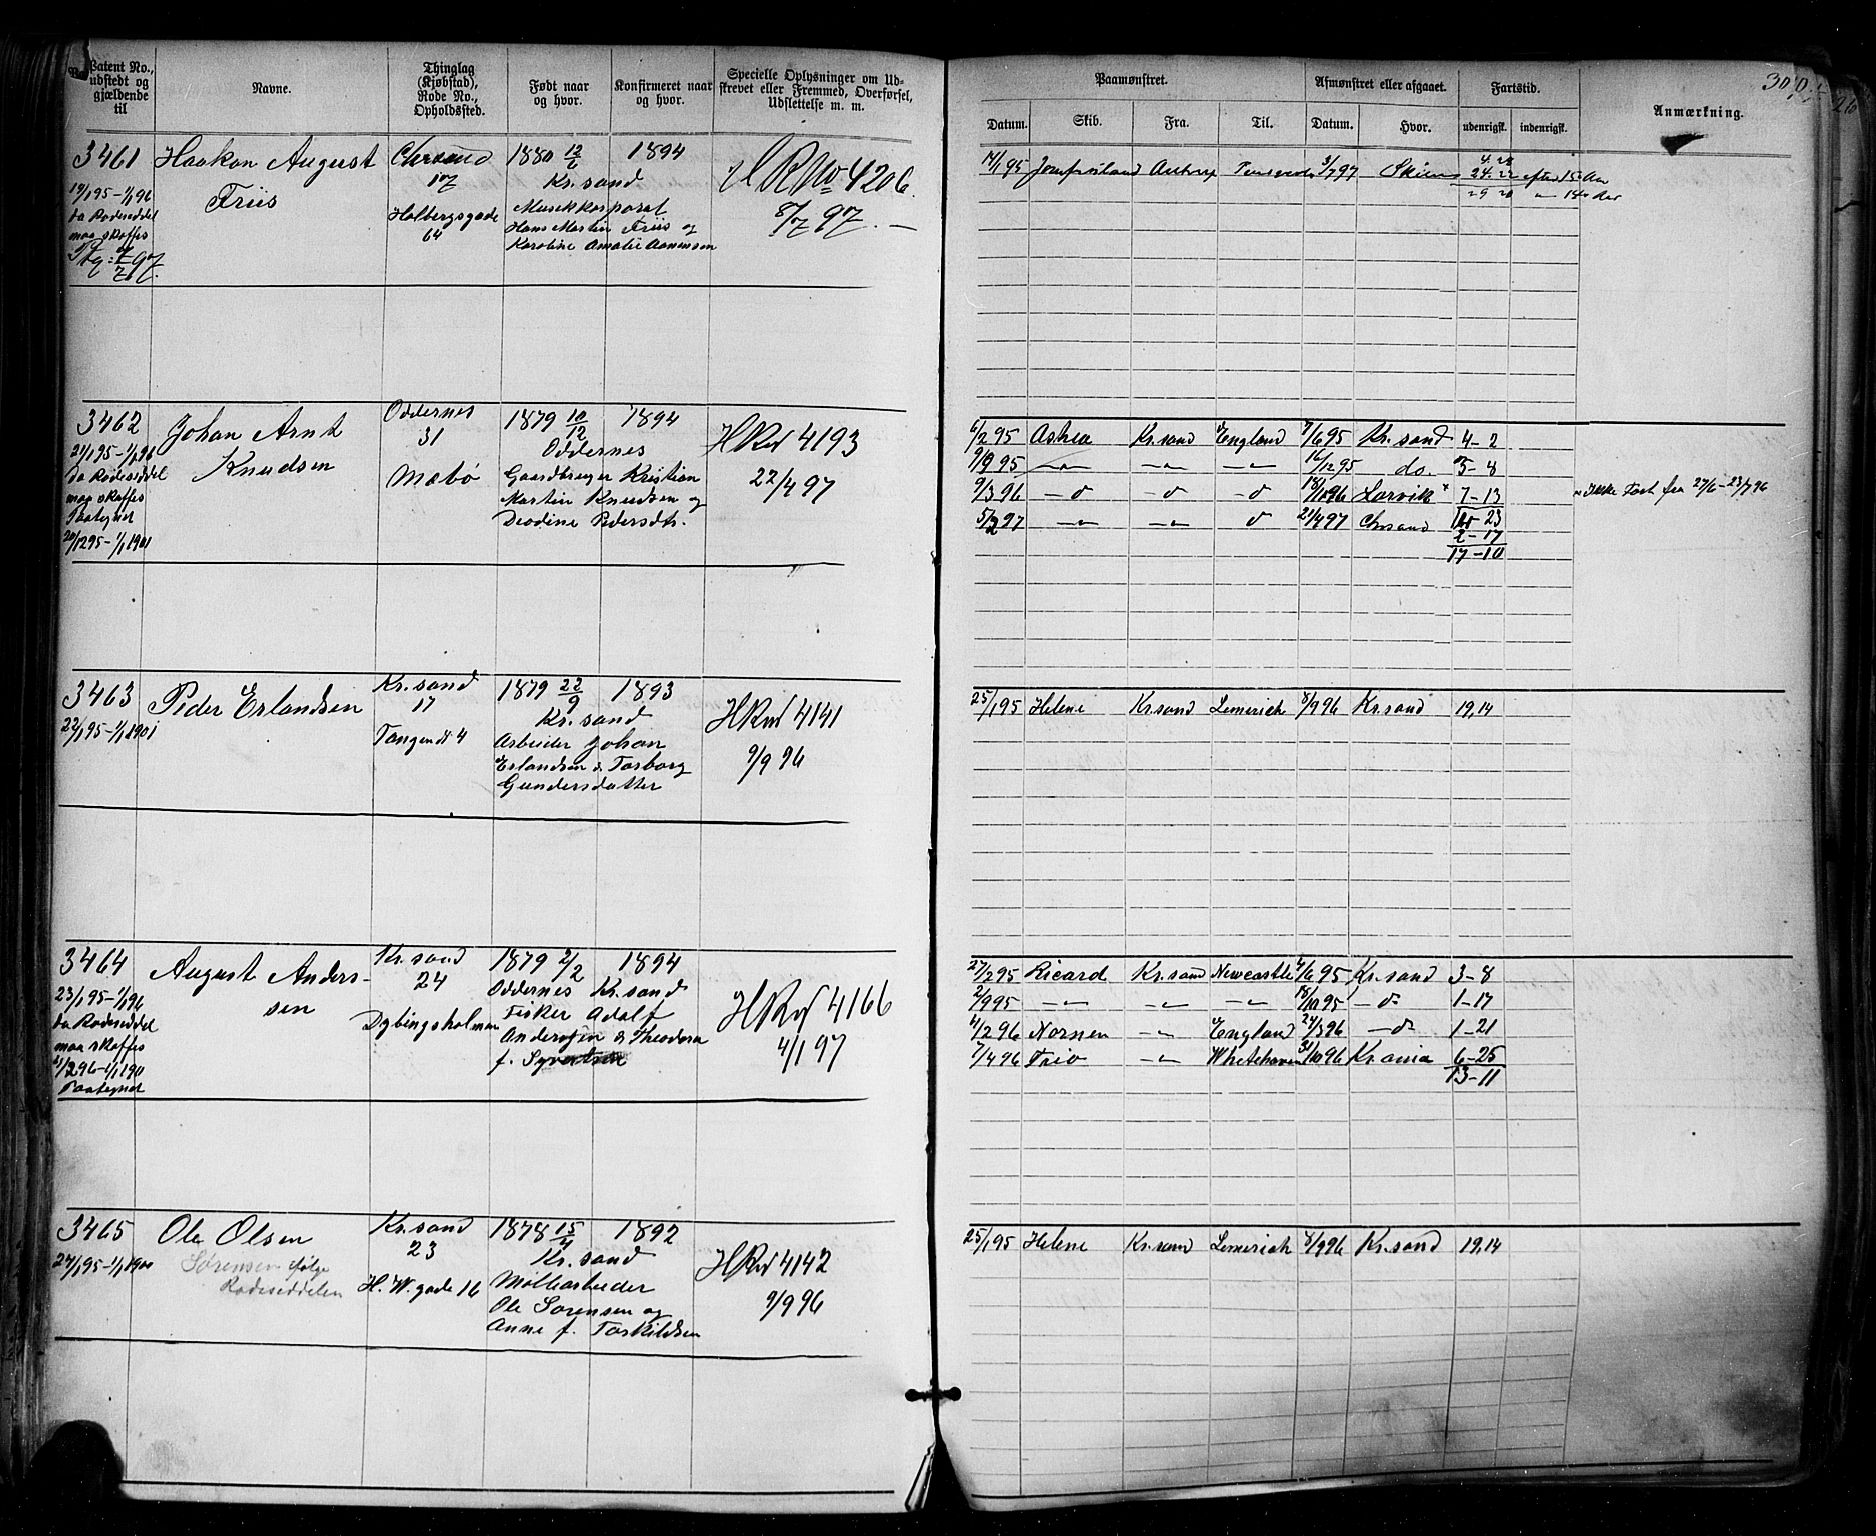 Patent No.,
udstedt og
gjældende
til
Navne.
Thinglag
(Kjøbstad),
Rode No.,
Opholdssted.
Født naar
og hvor.
Konfirmeret naar
og hvor.
Specielle Oplysninger om Ud-
skrevet eller Fremmed, Overførsel,
Udslettelse m. m.
Paamønstret.
Datum.
Skib.
Fra.
Til.
Afmønstret eller afgaaet.
Datum.
Hvor.
Fartstid.
udenrigsk.
indenrigsk.
Anmærkning.
300
3461
19/1 95 - 1/1 96
da Rodeseddel
maa skaffes
Haakon August
Friis
Chrsand
17
Holbergsgade
64
1880 12/6
Kr.sand
Musikkorporal
Hans Martin Friis og
Karoline Amalie Asmundsen
1894
H R No 4206.
8/7 97.
Antwerp
3/7 97
Skien
4. 28
24. 22 efter 15 Aar
29 20 " 14 Aar
3462
21/1 95 - 1/1 96
Da Rodeseddel
maa skaffes
Paategnet
20/12 95 - 1/1 1901
Johan Arnt
Knudsen
Oddernes
31
Mæbø
1879 10/12
Oddernes
Gaardbruger Kristian
Martin Knudsen og
Deodine Pedersdtr.
1894
HRNo 4193
22/4 97
6/2 95 Astrea Kr.sand England 7/6 95 Kr.sand 4 - 2
9/9 95 -"- -"- -"- 16/12 95 do. 3 - 8
9/3 96 - d - d - d 18/10 96 Larvik × 7 - 13
× Ikke Fart fra 27/6 - 23/7 96
5/2 97 -"- -"- d 21/4 97 Chrsand 23
2 - 17
17 - 10
3463
22/1 95 - 1/1 1901
Peder Erlandsen
Kr.sand
17
Tangendt 4
1879 22/9
Kr.sand
Arbeider Johan
Erlandsen & Torborg
Gundersdatter
1893
HRNo 4141
9/9 96
25/1 95 Helene Kr.sand Limerich 8/9 96 Kr.sand 19,14
3464
23/1 95 - 1/1 96
da Rodeseddel
maa skaffes
Paategnet
August Anders-
sen
Kr.sand
24
Dybingsholmen
1879 2/2
Oddernes Kr.sand
Fisker Adolf
Andersen & Theodora
f. Syvertsen
1894
HRNo 4166
4/1 97
27/2 95 Ricard Kr.sand Newcastle 4/6 95 Kr.sand 3 - 8
2/9 95 -"- -"- -"- 18/10 95 - d - 1 - 17
4/2 96 Nornen -"- England 24/3 96 - d - 1 - 21
7/4 96 Trio -"- Whitehaven 31/10 96 Kr.ania 6 - 25
13 - 11
3465
24/1 95 - 1/1 1900
Ole Olsen
Sørensen ifølge
Rodeseddelen
Kr.sand
23
H. W. gade 16
1878 15/4
Kr.sand
Møllearbeider
Ole Sørensen og
Anne f. Torkildsen
1892
HRNo 4142
9/9 96
25/1 95 Helene Kr.sand Limerich 8/9 96 Kr.sand 19,14